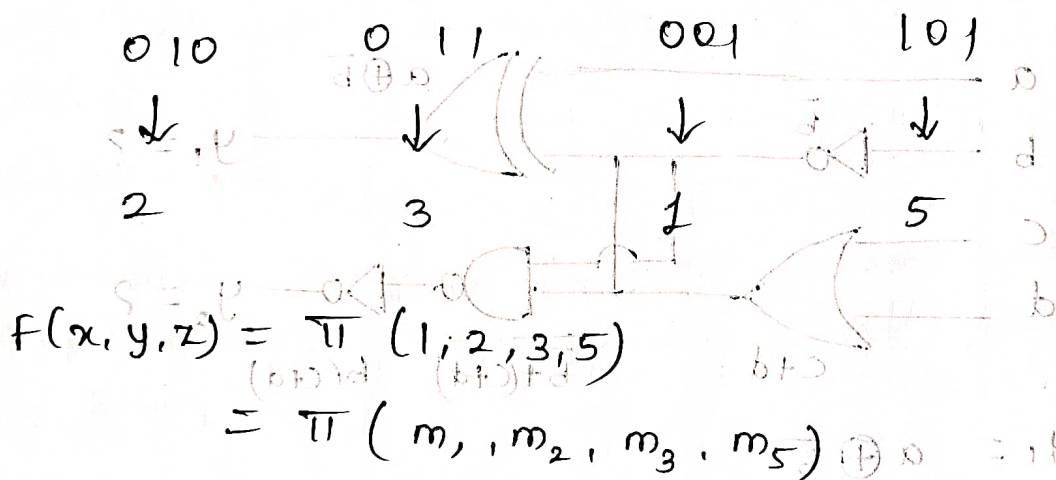 010 0 11 001 101
↓ ↓ ↓ ↓
2 3 1 5
F(x, y, z) = π (1, 2, 3, 5)
= π ( m, , m₂ , m₃ . m₅ )